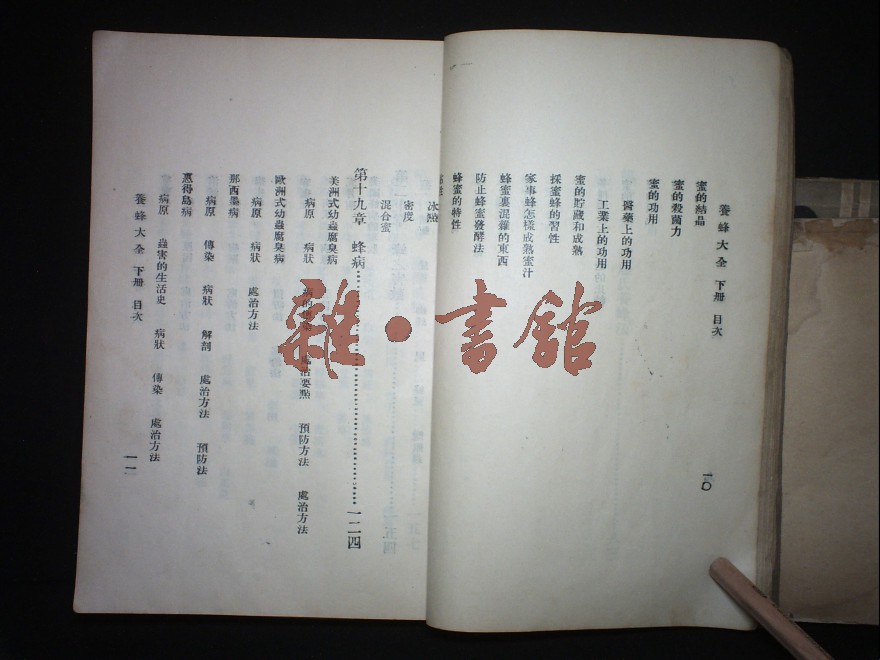 養蜂大全 下冊 目次
蜜的結晶
蜜的殺菌力
蜜的功用
醫藥上的功用
工業上的功用
蜜的貯藏和成熟
採蜜蜂的習性
家事蜂怎樣成熟蜜汁
蜂蜜裏混雜的東西
防止蜂蜜發酵法
蜂蜜的特性
一〇
冰點
密度
混合蜜
第十九章 蜂病 一二四
美洲式幼蟲腐臭病
病原 病狀 處治要點 預防方法 處治方法
歐洲式幼蟲腐臭病
病原 病狀 處治方法
那西墨病
病原 傳染 病狀 解剖 處治方法 預防法
惠得島病
病原 蟲害的生活史 病狀 傳染 處治方法
養蜂大全 下冊 目次
一一
雜·書館